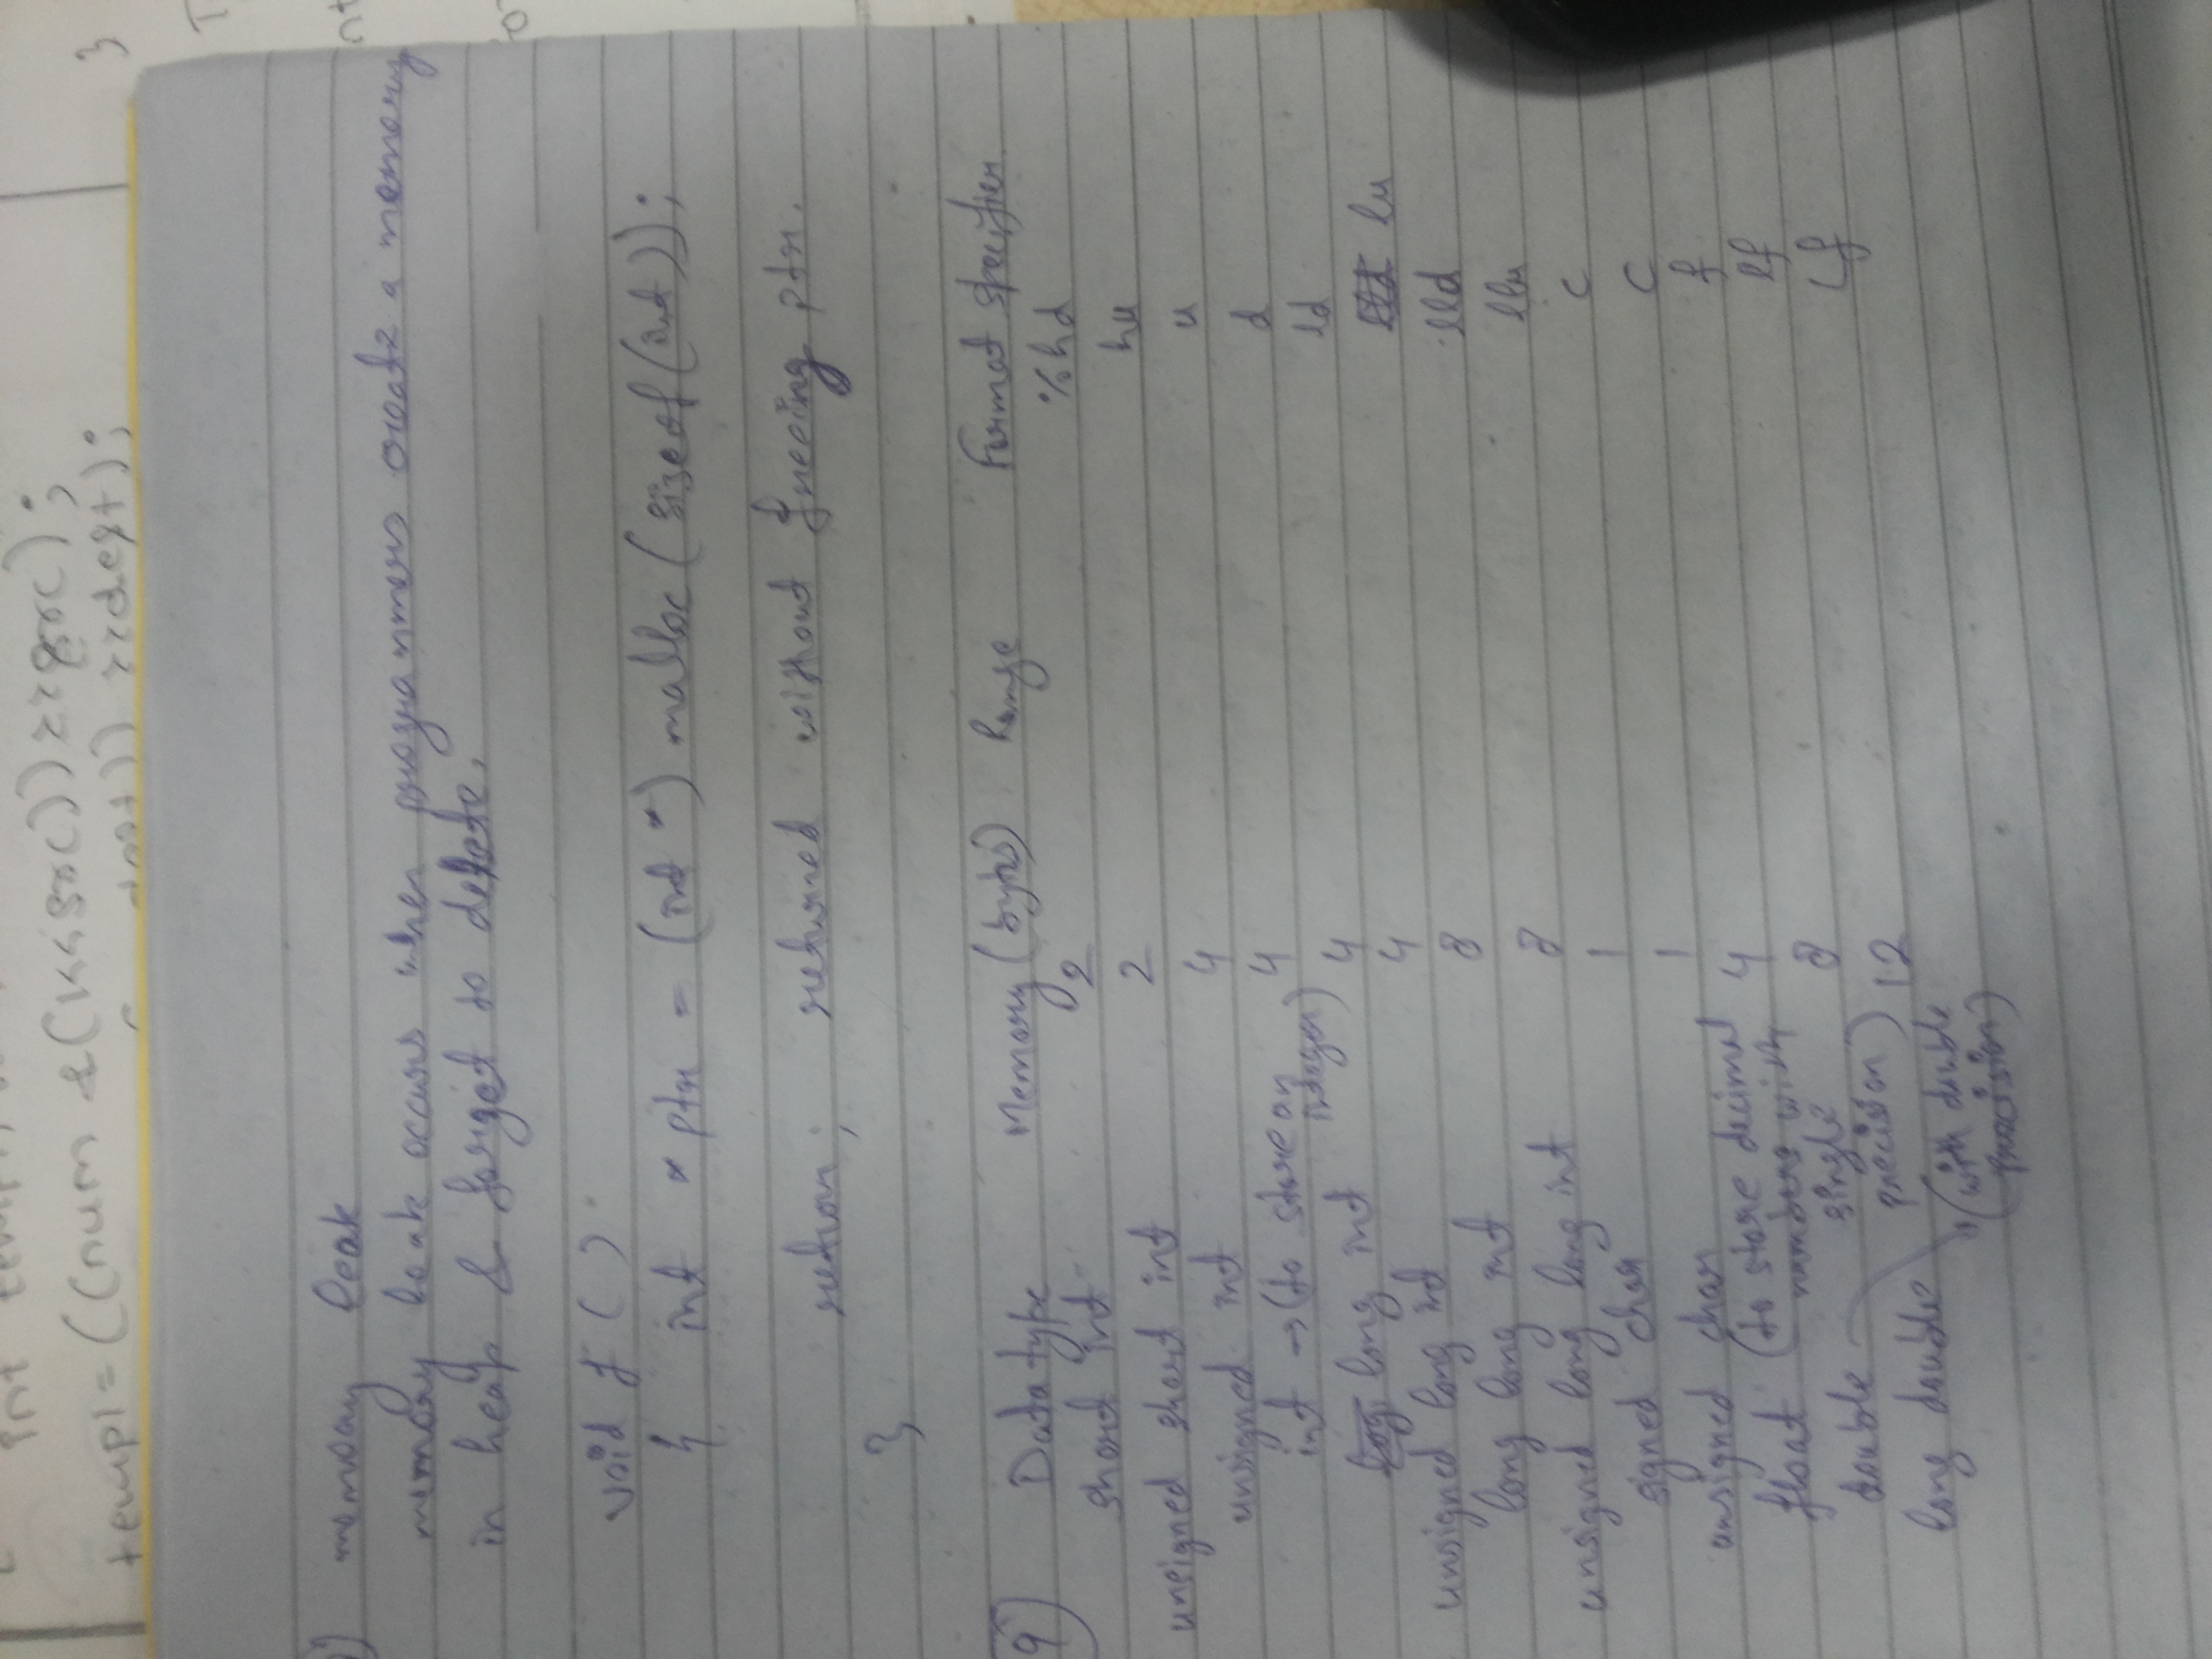 int temp1,
temp1 = ((num & (1<<src)) >>src);
dest)) >>dest);
}
memory leak
memory leak occurs when programmers create a memory
in heap & forget to delete.
void f ( )
{ int * ptr = (int *) malloc (sizeof (int));
return; returned without freeing ptr.
}
9) Data type Memory (bytes) Range Format specifier
short int 2 %hd
unsigned short int 2 hu
unsigned int 4 u
int → (to store an integer) 4 d
long int 4 ld
unsigned long int 4 lu
long long int 8 lld
unsigned long long int 8 llu
signed char 1 c
unsigned char 1 c
float (to store decimal numbers with single precision) 4 f
double (with double precision) 8 lf
long double 12 Lf